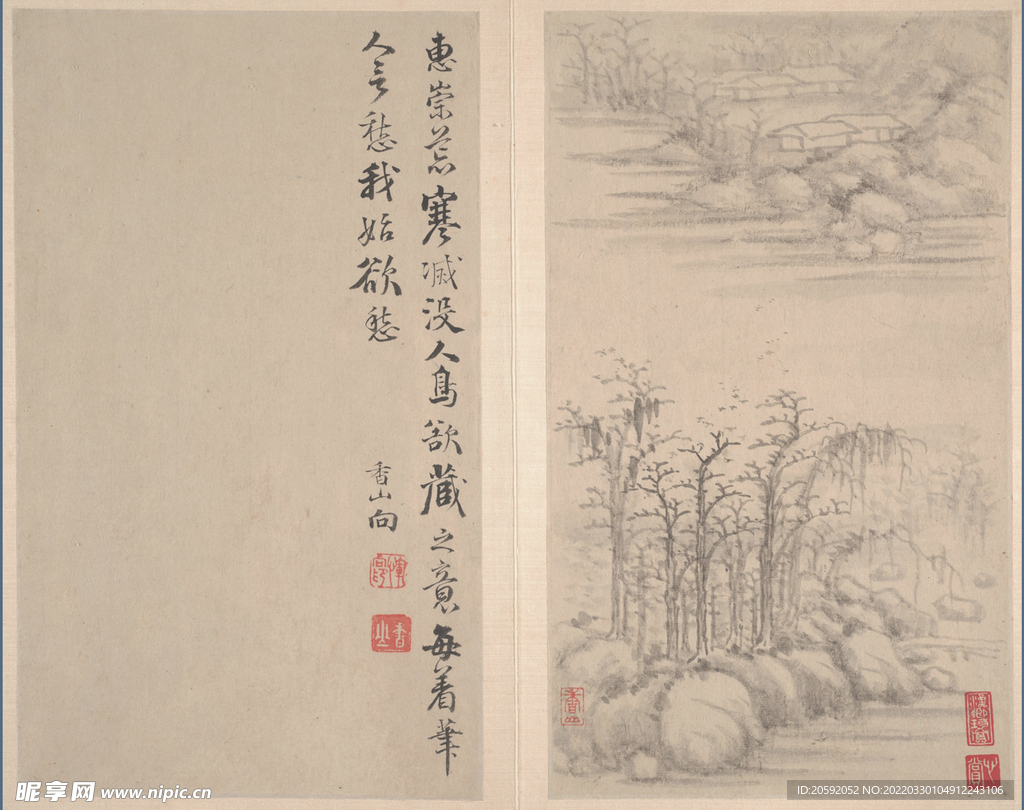 惠崇荒寒滅没人鳥欲藏之意每着筆
人言愁我始欲愁
香山向
香山
香山
昵享网 www.nipic.cn
ID:20592052 NO:20220330104912243106